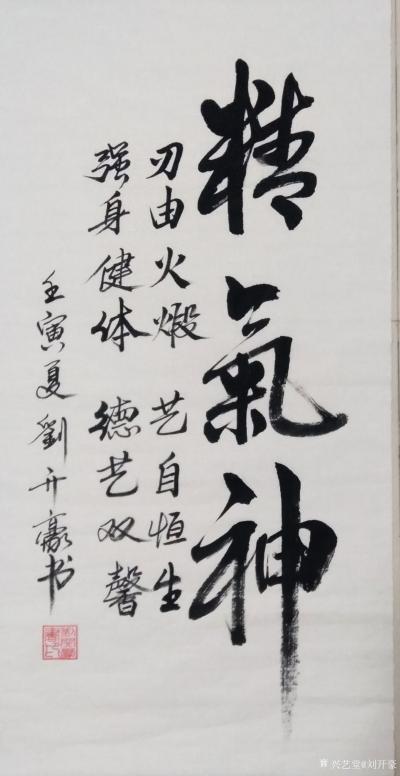 精氣神
刃由火煅 艺自恒生
强身健体 德艺双馨
壬寅夏劉开豪书
兴艺堂@刘开豪